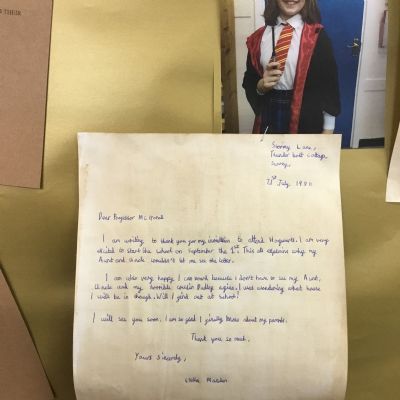 THEIR
Sunny Lane,
Thunder bolt Cottage,
Surrey,
21st July 1980
Dear Professor
I am writing to thank you for my invitation to attend Hogwarts. I am very
excited to start this school on September the 1st. This all explains why my
Aunt and Uncle wouldn't let me see the letter.
I am also very happy I can come because I don't have to see my Aunt,
Uncle and my horrible cousin Dudley again. I was wondering what house
I will be in though. Will I find out at school?
I will see you soon. I am so glad I finally know about my parents.
Thank you so much.
Yours Sincerely,